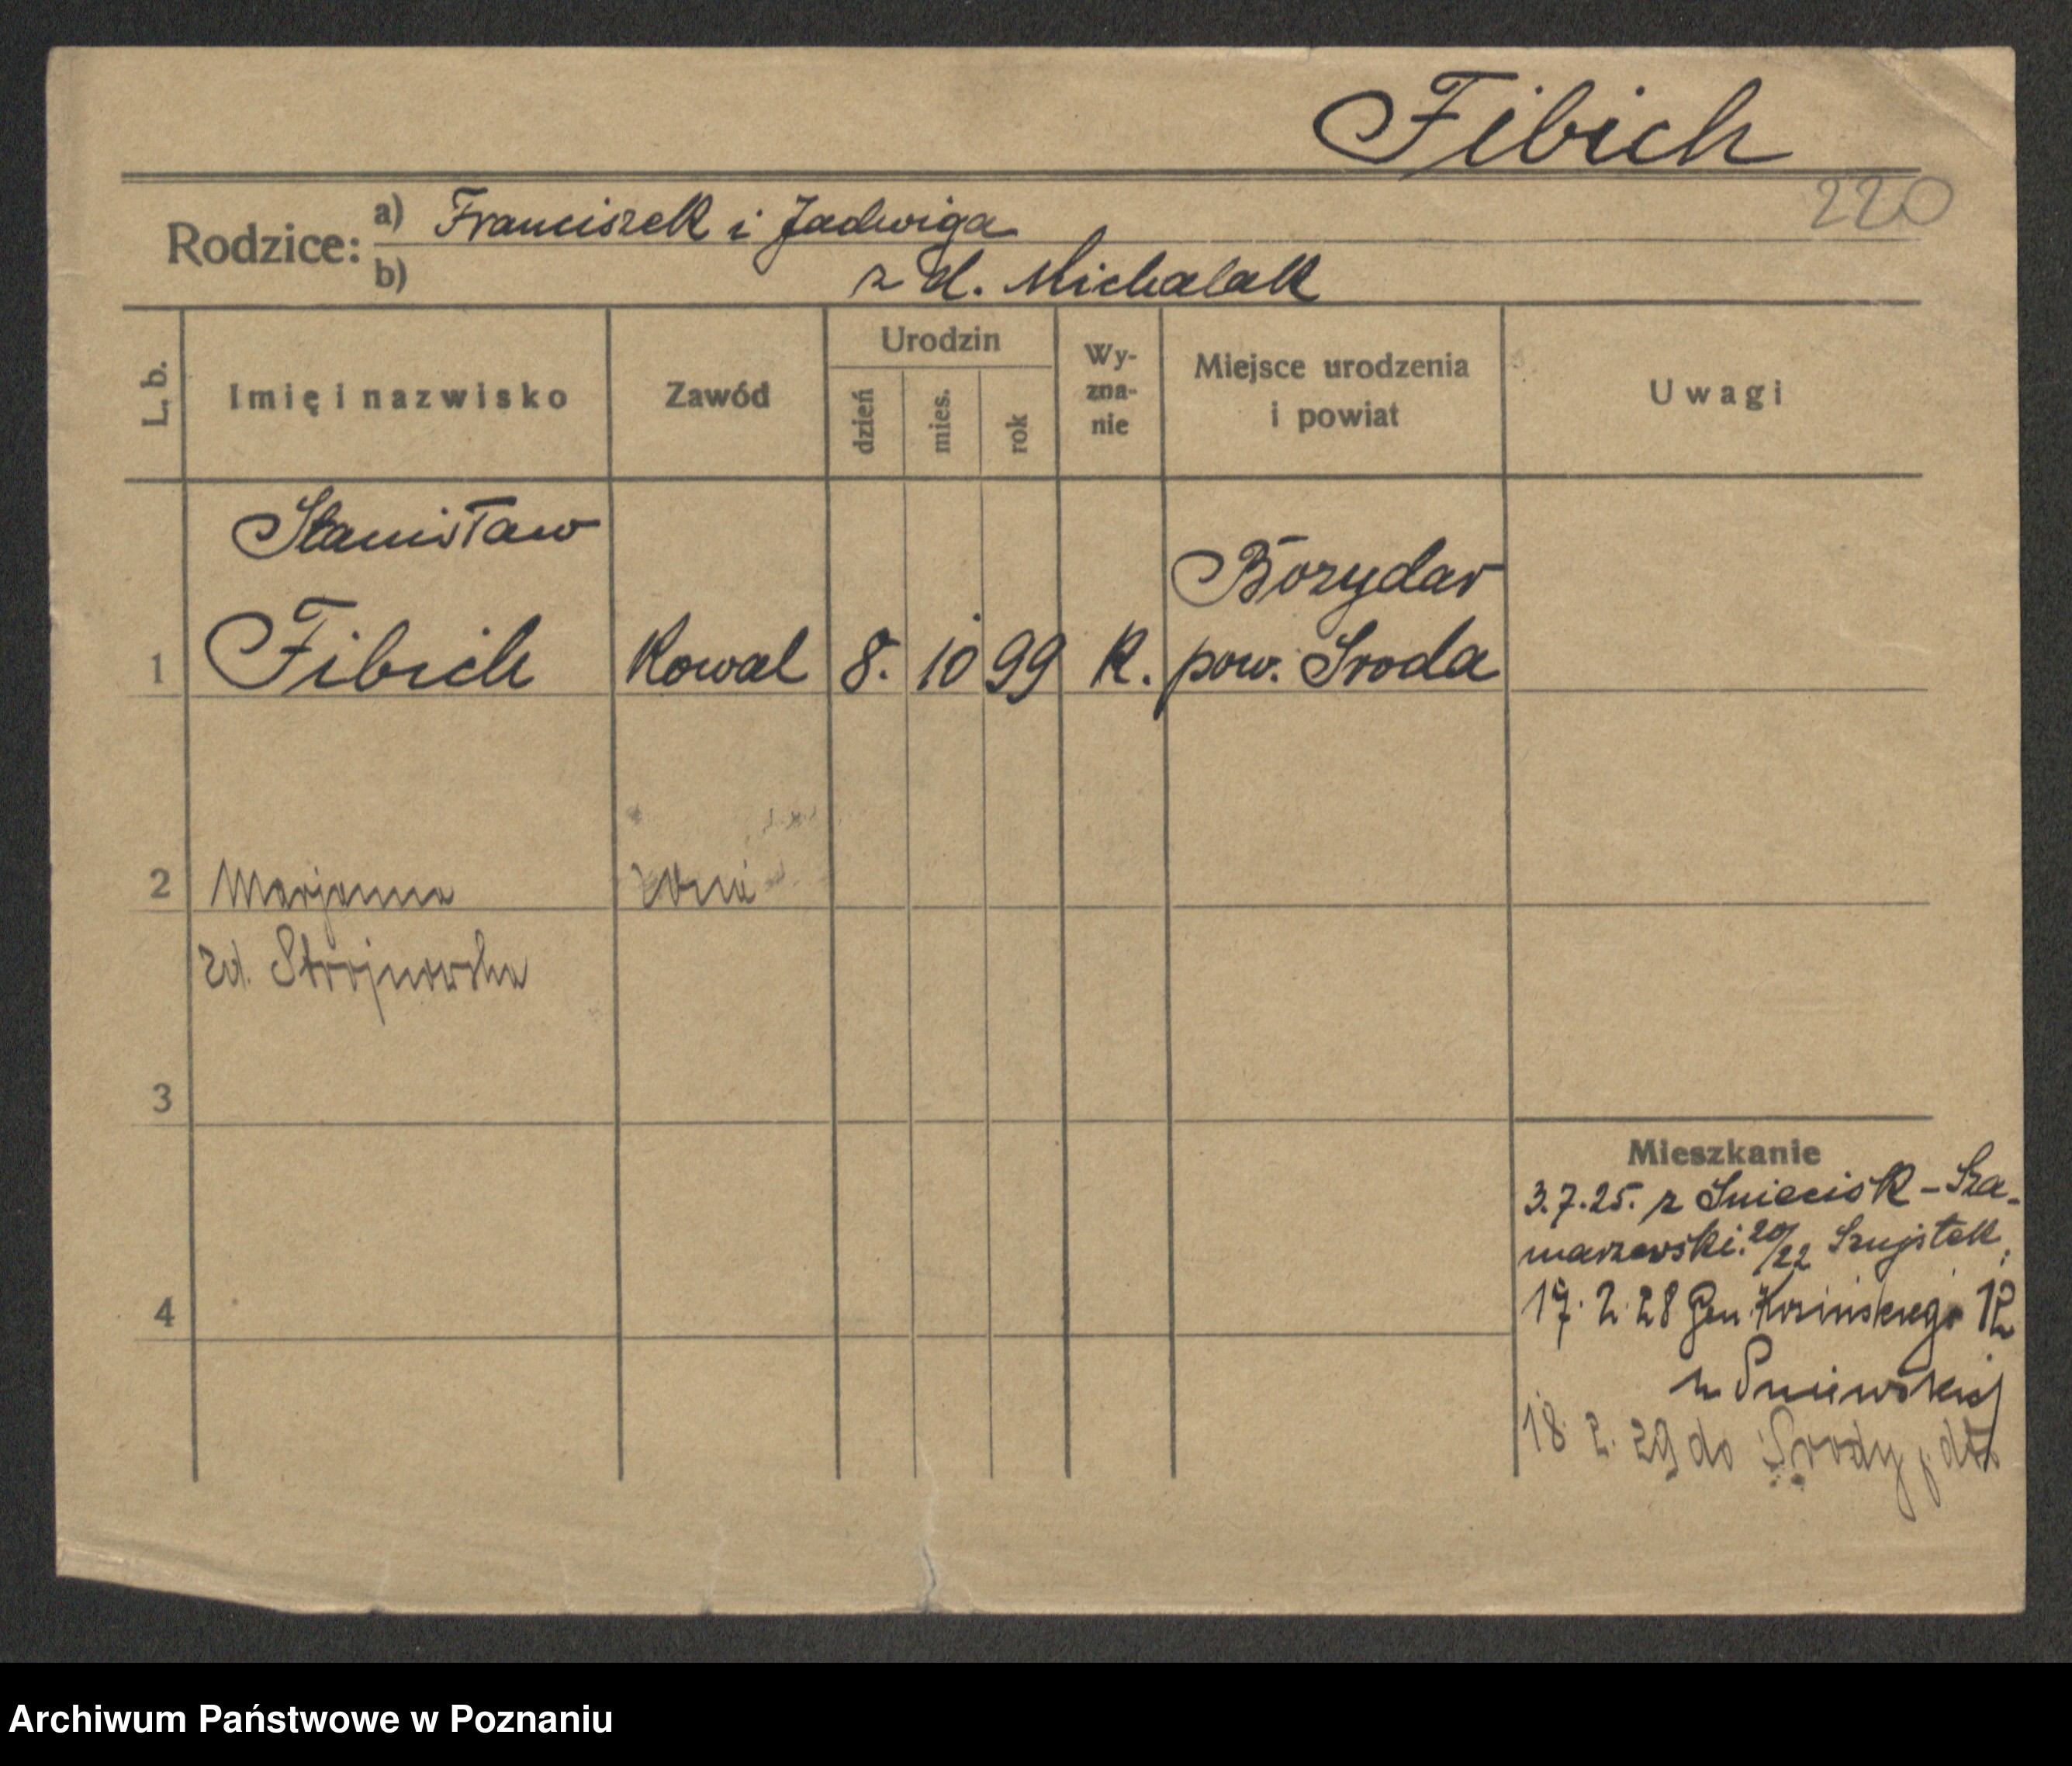 Fibich
220
Rodzice: a) Franciszek i Jadwiga
b) z d. Michalak
L. b.
Imię i nazwisko
Zawód
Urodzin
dzień
mies.
rok
Wy-
zna-
nie
Miejsce urodzenia
i powiat
Uwagi
Stanisław
Bozydar
1 Fibich Kowal 8. 10 99 K. pow. Sroda
2 Marjanna
zd. Strojnowska
3
4
Mieszkanie
3.7.25. z Sniecisk - Sza-
marzewski. 20/22
17. 2. 28 Gen. Kosińskiego 12
u Pniewskiej
18. 2. 29 do Środy
Archiwum Państwowe w Poznaniu